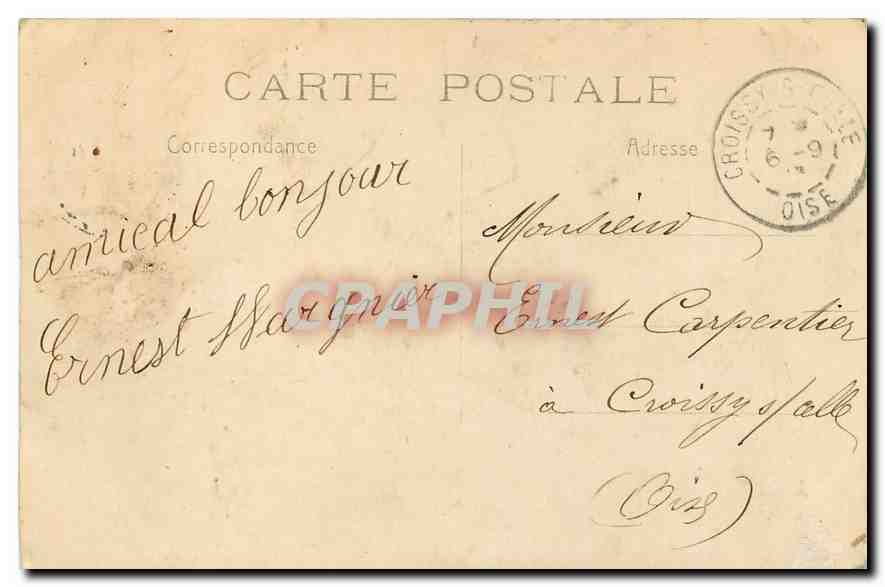 CARTE POSTALE
Correspondance
Adresse
CROISSY S CELLE
7
6 -9
OISE
amical bonjour
Ernest Wargnier
Monsieur
Ernest Carpentier
à Croissy s/celle
(Oise)
CRAPHIL